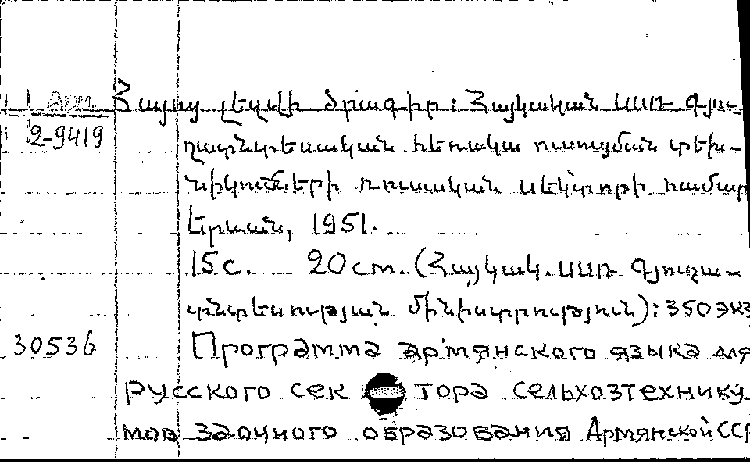 Հայոց լեզվի ծրագիր: Հայկական ՍՍՌ գյու-
2-9419
ղատնտեսական հեռակա ուսուցման տեխ-
նիկումների ռուսական սեկտորի համար
Երևան, 1951.
15 с. 20 cm. (Հայկակ. ՍՍՌ Գյուղա-
տնտեսության մինիստրություն): 350 экз
30536 Программа армянского языка для
русского сек тора сельхозтехнику
мов заочного образования Армянской ССР